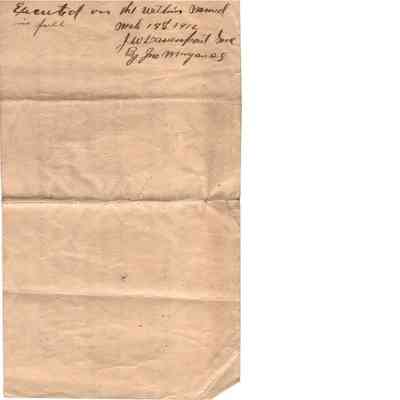 Executed on the within named
in full
Mch 18th 1912
J.W. Davenport
By Jno